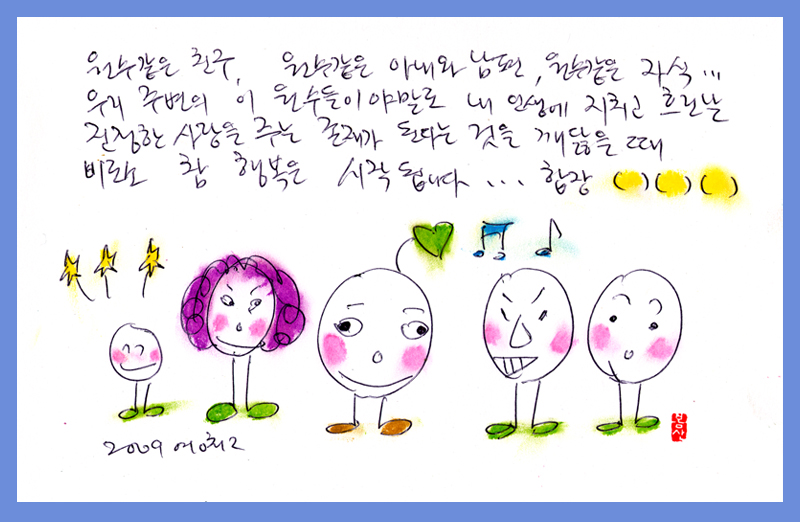 원수같은 친구, 원수같은 아내와 남편, 원수같은 자식...
우리 주변의 이 원수들이야말로 내 인생에 지치고 흐린날
진정한 사랑을 주는 존재가 된다는 것을 깨닳을 때
비로소 참 행복은 시작됩니다... 합장 ( ) ( ) ( )
2009